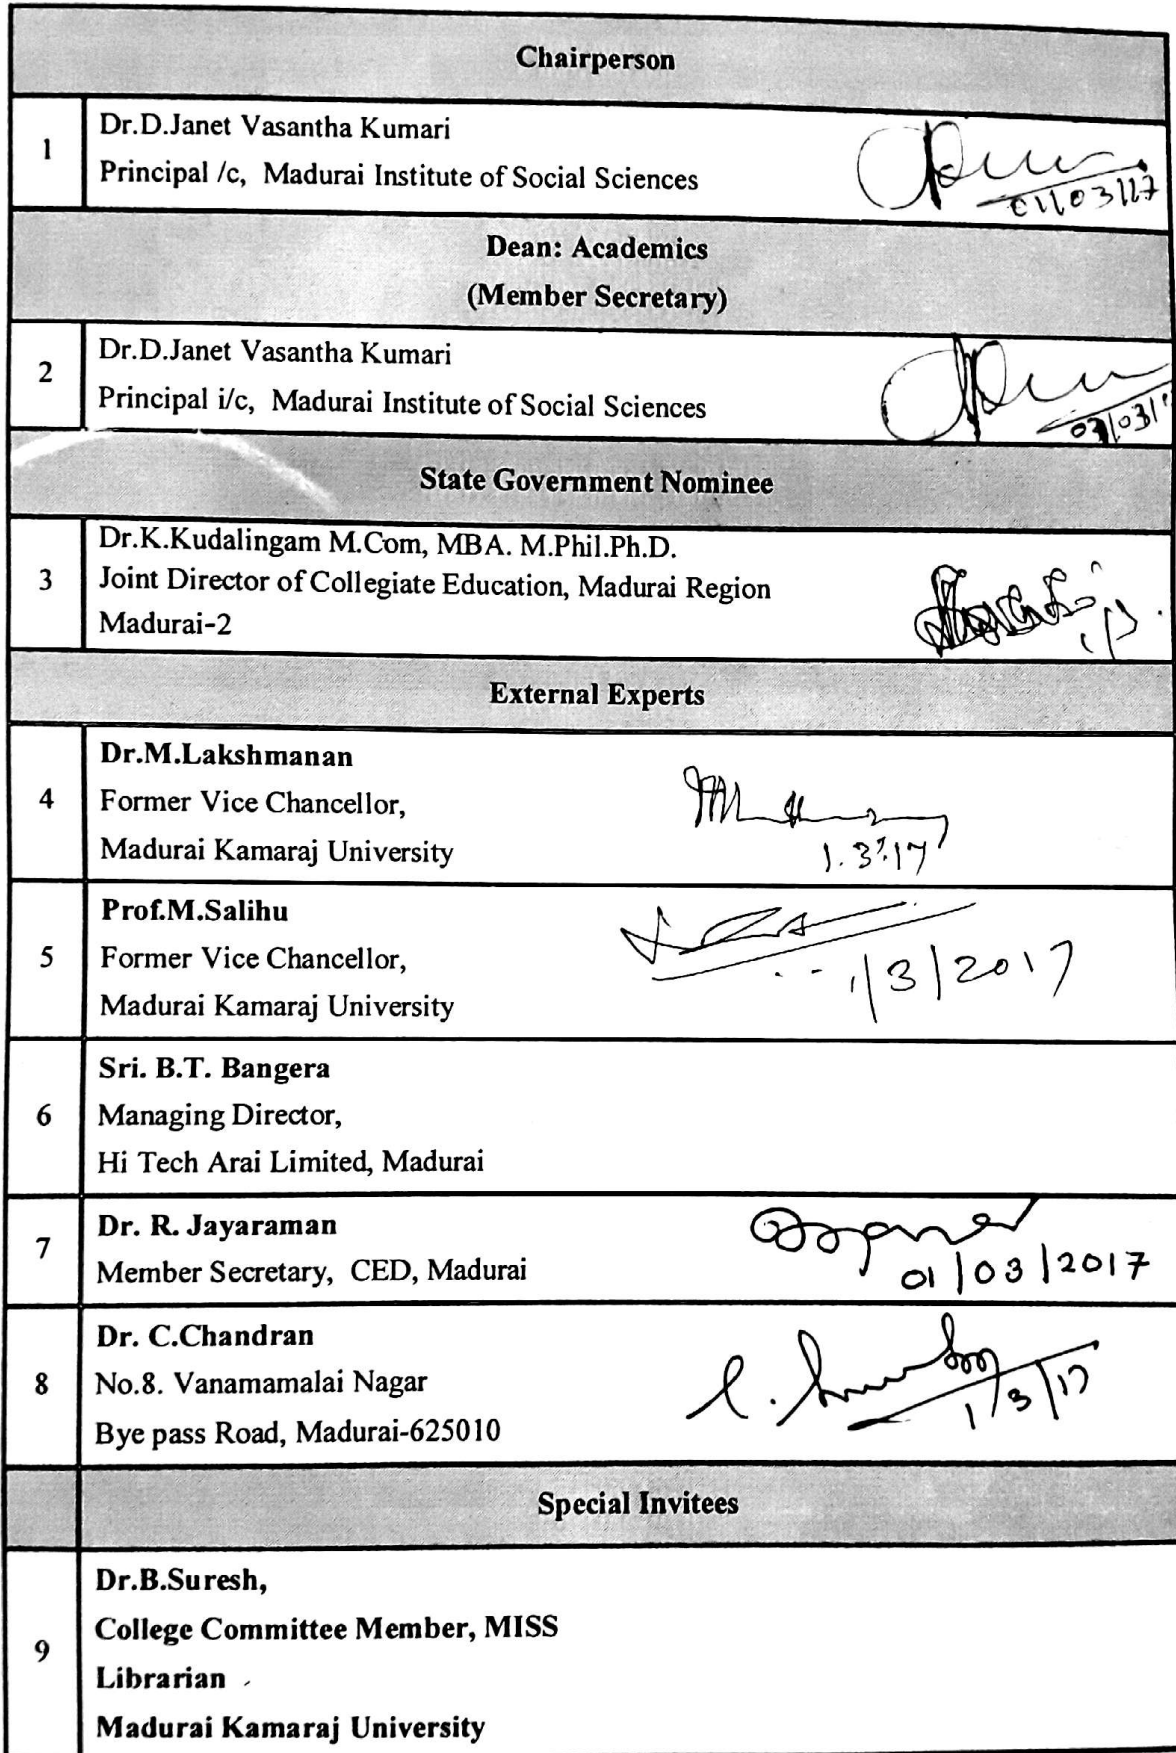 Chairperson
1
Dr.D.Janet Vasantha Kumari
Principal /c, Madurai Institute of Social Sciences
01/03/17
Dean: Academics
(Member Secretary)
2
Dr.D.Janet Vasantha Kumari
Principal i/c, Madurai Institute of Social Sciences
State Government Nominee
3
Dr.K.Kudalingam M.Com, MBA. M.Phil.Ph.D.
Joint Director of Collegiate Education, Madurai Region
Madurai-2
External Experts
4
Dr.M.Lakshmanan
Former Vice Chancellor,
Madurai Kamaraj University
1.3.17
5
Prof.M.Salihu
Former Vice Chancellor,
Madurai Kamaraj University
1/3/2017
6
Sri. B.T. Bangera
Managing Director,
Hi Tech Arai Limited, Madurai
7
Dr. R. Jayaraman
Member Secretary, CED, Madurai
01/03/2017
8
Dr. C.Chandran
No.8. Vanamamalai Nagar
Bye pass Road, Madurai-625010
1/3/17
Special Invitees
9
Dr.B.Suresh,
College Committee Member, MISS
Librarian
Madurai Kamaraj University